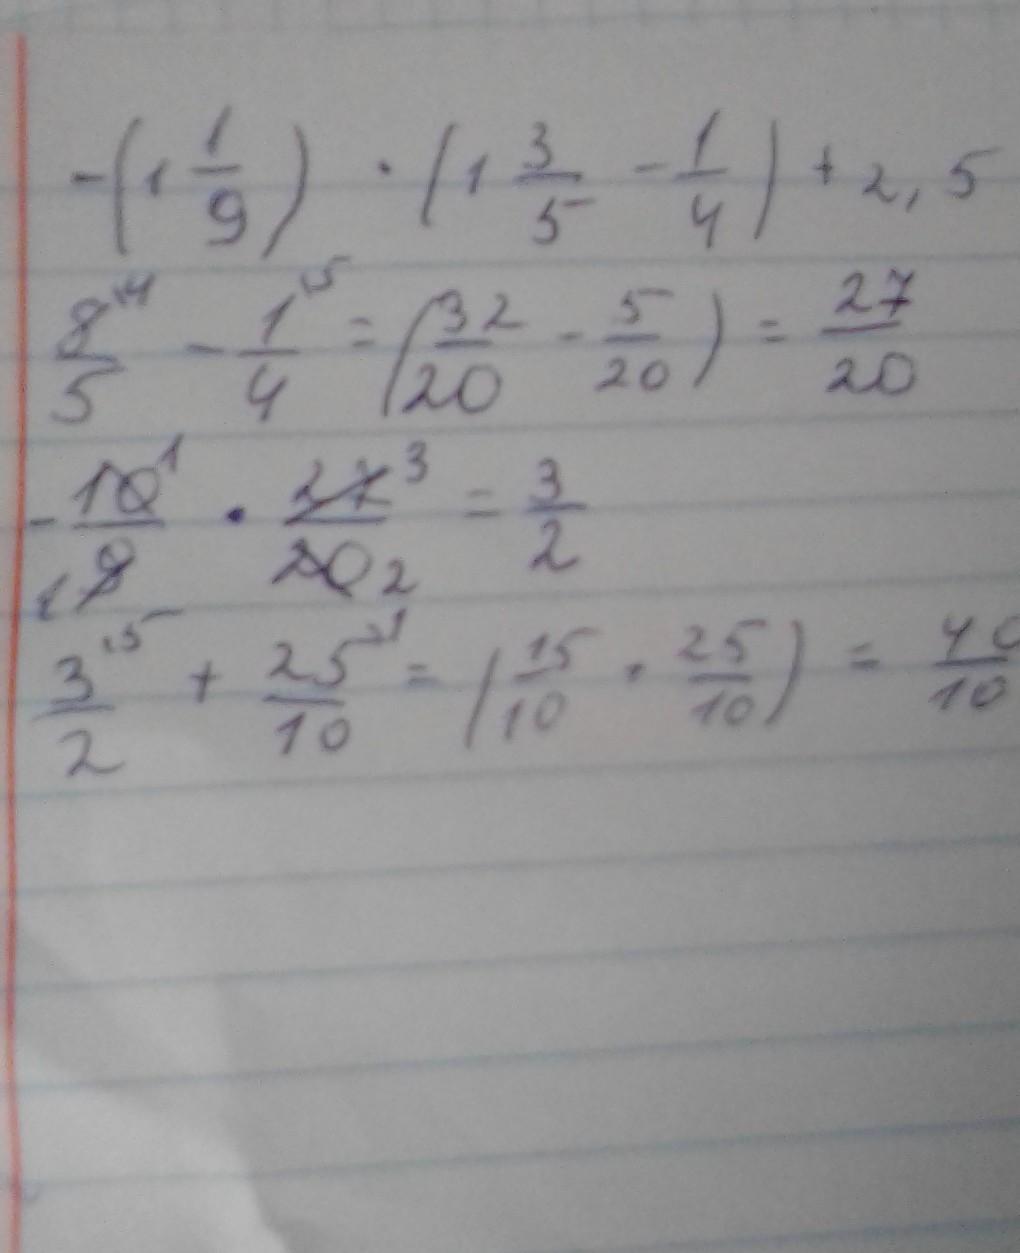 -(1 1/9) · (1 3/5 - 1/4) + 2,5
8/5 ·4 - 1/4 ·5 = (32/20 - 5/20) = 27/20
-10/9 1 1 · 27/20 3 2 = 3/2
3/2 ·5 + 25/10 ·1 = (15/10 · 25/10) = 40/10